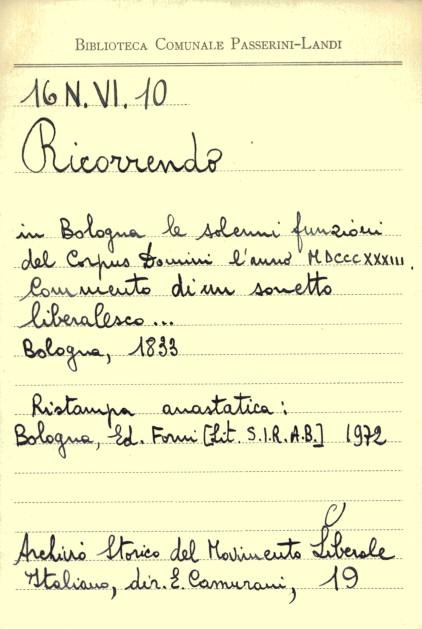 BIBLIOTECA COMUNALE PASSERINI-LANDI
16 N. VI. 10
Ricorrendo
in Bologna le solenni funzioni
del Corpus Domini l'anno MDCCCXXXIII.
Commento di un sonetto
liberalesco...
Bologna, 1833
Ristampa anastatica:
Bologna, Ed. Forni [Lit. S.I.R.A.B.] 1972
Archivio Storico del Movimento Liberale
Italiano, dir. E. Camurani, 19